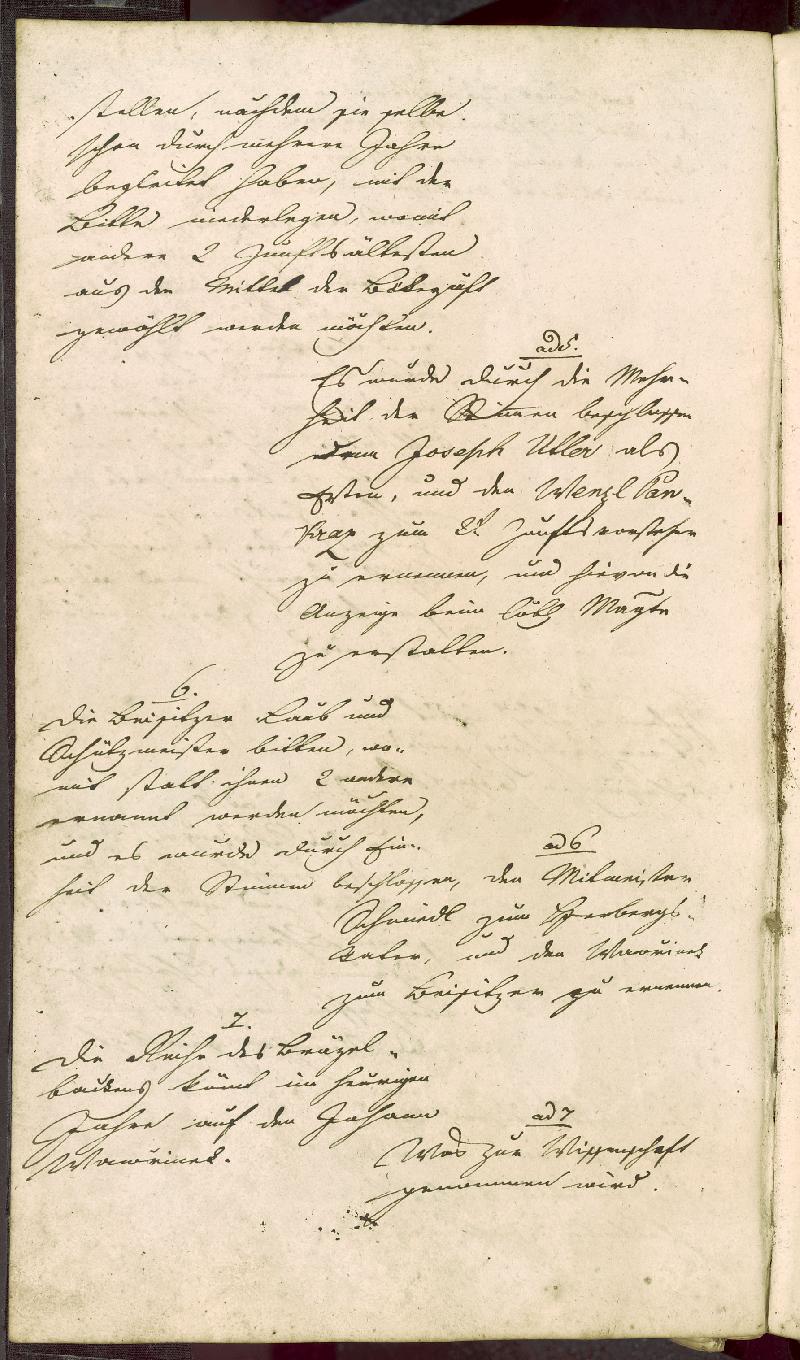 stellen, nachdem sie selbe
schon durch mehrere Jahre
begleitet haben, mit der
Bitte niederlegen, womit
andere 2 Zunftsältesten
aus der Mittel der
gewählt werden möchten.
ad 5.
Es wurde durch die Mehr-
heit der Stimen beschlossen
den Joseph Utler als
Ersten, und den Wenzl Pan-
kraz zum 2t Zunftsvorsteher
zu ernennen, und hievon die
Anzeige beim löbl Magte
zu erstatten.
6.
Die Beisitzer Raab und
Schützmeister bitten, wo-
mit statt ihnen 2 andere
ernannt werden möchten,
und es wurde durch Ein-
heit der Stimmen beschlossen, den
ad 6
Mitmeister
Schmiedl zum Herbergs-
vater, und den Wawrinek
zum Beisitzer zu ernennen.
7.
Die Reihe des Bräzel-
backens kömt im heurigen
Jahre auf den Johann
Wawrinek.
ad 7
Was zur Wissenschaft
genommen wird.